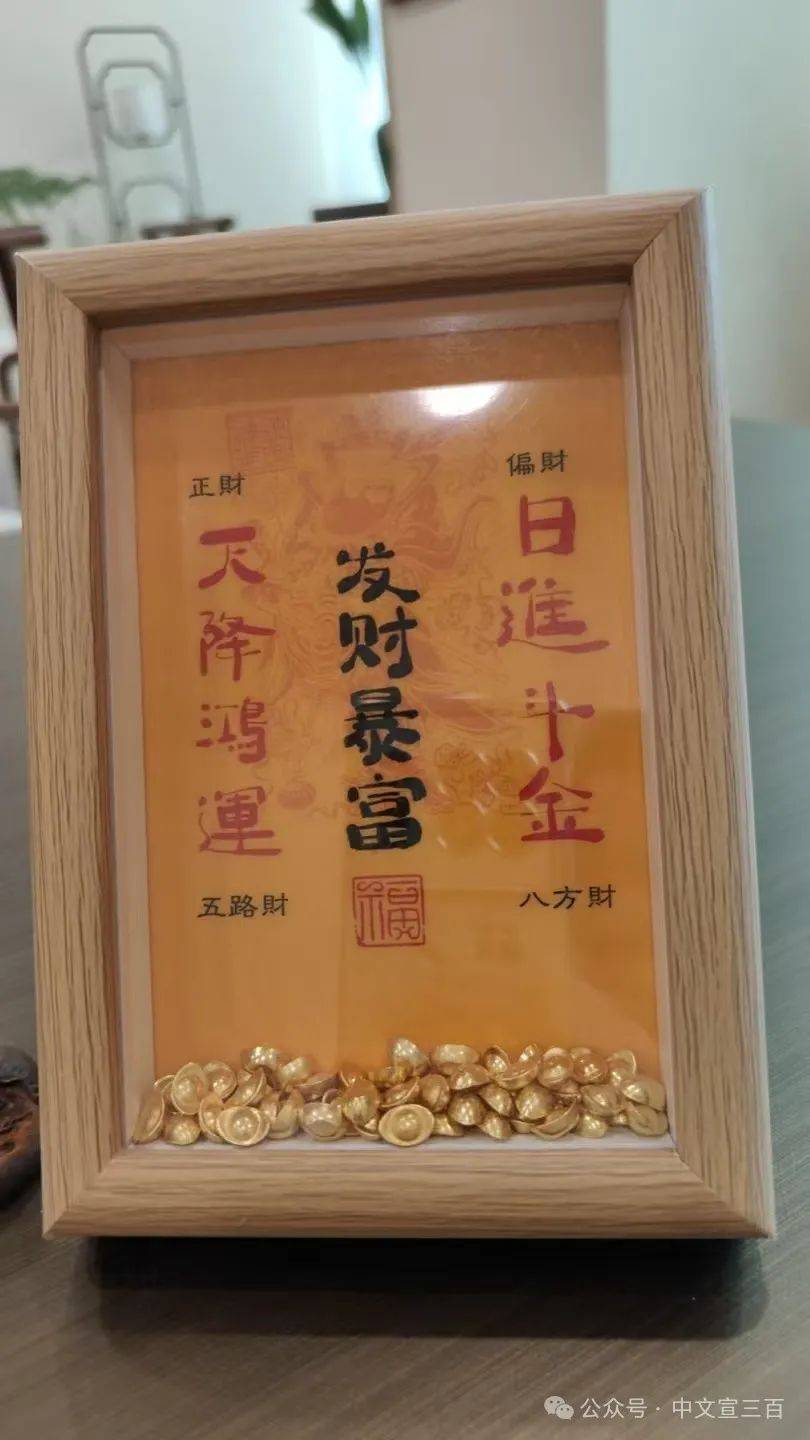 偏財
日進斗金
八方財
发财暴富
福
正財
天降鴻運
五路財
公众号 · 中文宣三百